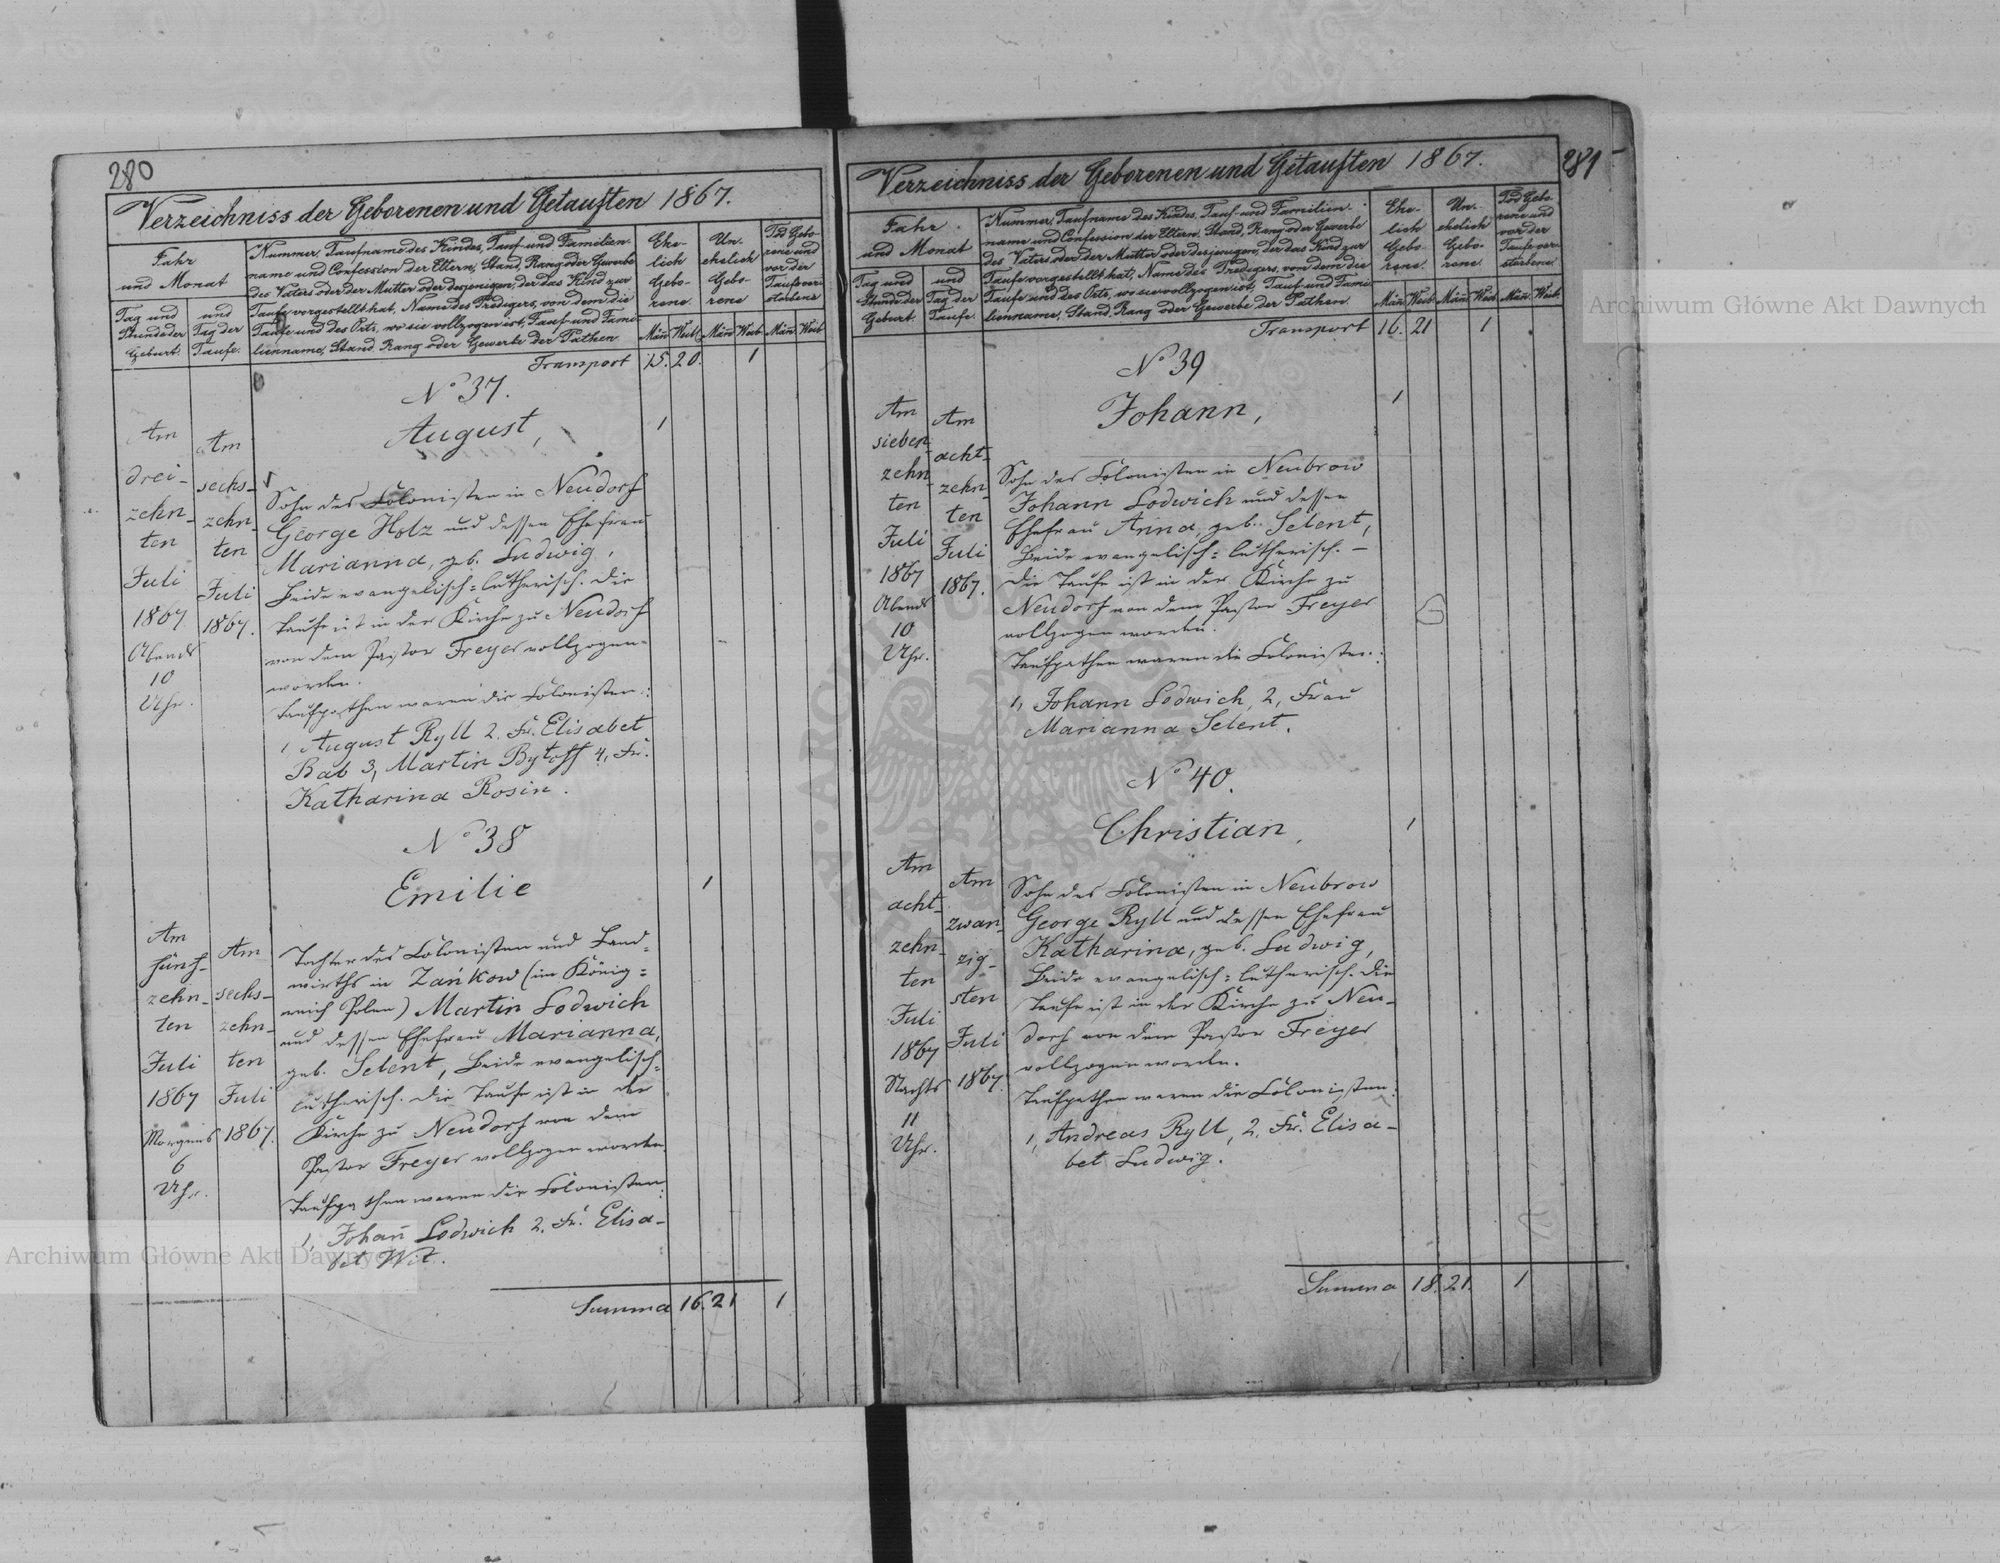 280
Verzeichniss der Geborenen und Getauften 1867.
Jahr
und Monat
Tag und
Stunde der
Geburt.
und
Tag der
Taufe.
Nummer, Taufname des Kindes, Tauf- und Familien-
name und Confession der Eltern, Stand, Rang oder Gewerbe
des Vaters oder der Mutter oder desjenigen, der das Kind zur
Taufe vorgestellt hat, Name des Predigers, von dem die
Taufe und des Orts, wo sie vollzogen ist, Tauf- und Fami-
lienname, Stand, Rang oder Gewerbe der Pathen.
Ehe-
lich
Gebo-
rene.
Un-
ehelich
Gebo-
rene
Tod Gebo-
rene und
vor der
Taufe ver-
storbene
Män̄ Weib Män̄ Weib Män̄ Weib
Transport 15. 20. 1
No 37.
August, 1
Am
drei-
zehn-
ten
Juli
1867
Abends
10
Uhr.
Am
sechs-
zehn-
ten
Juli
1867.
Sohn des Colonisten in Neudorf
George Holz und dessen Ehefrau
Marianna, geb. Ludwig,
Beide evangelisch=lutherisch. Die
Taufe ist in der Kirche zu Neudorf
von dem Pastor Freyer vollzogen
worden.
Taufpathen waren die Colonisten:
1, August Ryll 2. Fr. Elisabet
Bab 3, Martin Bytoff 4, Fr.
Katharina Rosin.
No 38
Emilie 1
Am
fünf-
zehn-
ten
Juli
1867
Morgens
6
Uhr.
Am
sechs-
zehn-
ten
Juli
1867.
Tochter des Colonisten und Land-
wirths in Zańkow (im König=
reich Polen) Martin Lodwich
und dessen Ehefrau Marianna,
geb. Selent, Beide evangelisch=
lutherisch. Die Taufe ist in der
Kirche zu Neudorf von dem
Pastor Freyer vollzogen worden.
Taufpathen waren die Colonisten:
1, Johan̄ Lodwich 2. Fr. Elisa-
bet Wit.
Summa 16. 21 1
281
Verzeichniss der Geborenen und Getauften 1867.
Jahr
und Monat
Tag und
Stunde der
Geburt.
und
Tag der
Taufe.
Nummer, Taufname des Kindes, Tauf- und Familien-
name und Confession der Eltern, Stand, Rang oder Gewerbe
des Vaters oder der Mutter oder desjenigen, der das Kind zur
Taufe vorgestellt hat, Name des Predigers, von dem die
Taufe und des Orts, wo sie vollzogen ist, Tauf- und Fami-
lienname, Stand, Rang oder Gewerbe der Pathen.
Ehe-
lich
Gebo-
rene.
Un-
ehelich
Gebo-
rene.
Tod Gebo-
rene und
vor der
Taufe ver-
storbene
Män̄ Weib Män̄ Weib Män̄ Weib
Transport 16. 21 1
No 39
Johann, 1
Am
sieben-
zehn-
ten
Juli
1867
Abends
10
Uhr.
Am
acht-
zehn-
ten
Juli
1867.
Sohn des Colonisten in Neubrow
Johann Lodwich und dessen
Ehefrau Anna, geb. Selent,
Beide evangelisch=lutherisch. –
Die Taufe ist in der Kirche zu
Neudorf von dem Pastor Freyer
vollzogen worden.
Taufpathen waren die Colonisten:
1, Johann Lodwich, 2, Frau
Marianna Selent.
No 40.
Christian, 1
Am
acht-
zehn-
ten
Juli
1867
Nachts
11
Uhr.
Am
zwan-
zig-
sten
Juli
1867.
Sohn des Colonisten in Neubrow
George Ryll und dessen Ehefrau
Katharina, geb. Ludwig,
Beide evangelisch=lutherisch. Die
Taufe ist in der Kirche zu Neu-
dorf von dem Pastor Freyer
vollzogen worden.
Taufpathen waren die Colonisten:
1, Andreas Ryll, 2. Fr. Elisa-
bet Ludwig.
Summa 18. 21. 1
Archiwum Główne Akt Dawnych
Archiwum Główne Akt Dawnych